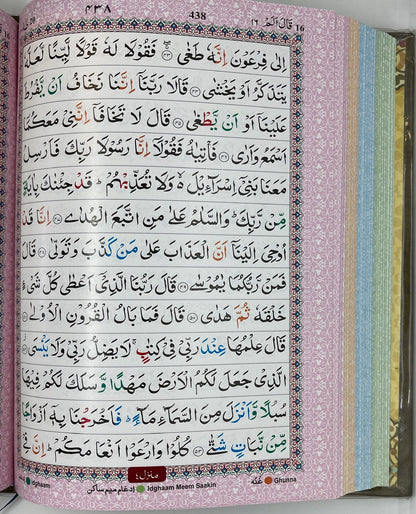 ٤٣٨ 438 قَالَ اَلَمْ ١٦ 16
اِلٰى فِرْعَوْنَ اِنَّهٗ طَغٰى ۚۖ ﴿٤٣﴾ فَقُوْلَا لَهٗ قَوْلًا لَّيِّنًا لَّعَلَّهٗ
يَتَذَكَّرُ اَوْ يَخْشٰى ﴿٤٤﴾ قَالَا رَبَّنَاۤ اِنَّنَا نَخَافُ اَنْ يَّفْرُطَ
عَلَيْنَاۤ اَوْ اَنْ يَّطْغٰى ﴿٤٥﴾ قَالَ لَا تَخَافَاۤ اِنَّنِىْ مَعَكُمَاۤ
اَسْمَعُ وَاَرٰى ﴿٤٦﴾ فَاْتِيٰهُ فَقُوْلَاۤ اِنَّا رَسُوْلَا رَبِّكَ فَاَرْسِلْ
مَعَنَا بَنِىْۤ اِسْرَآءِيْلَ ۙ وَلَا تُعَذِّبْهُمْ ؕ قَدْ جِئْنٰكَ بِاٰيَةٍ
مِّنْ رَّبِّكَ ؕ وَالسَّلٰمُ عَلٰى مَنِ اتَّبَعَ الْهُدٰى ﴿٤٧﴾ اِنَّا قَدْ
اُوْحِىَ اِلَيْنَاۤ اَنَّ الْعَذَابَ عَلٰى مَنْ كَذَّبَ وَتَوَلّٰى ﴿٤٨﴾ قَالَ
فَمَنْ رَّبُّكُمَا يٰمُوْسٰى ﴿٤٩﴾ قَالَ رَبُّنَا الَّذِىْۤ اَعْطٰى كُلَّ شَىْءٍ
خَلْقَهٗ ثُمَّ هَدٰى ﴿٥٠﴾ قَالَ فَمَا بَالُ الْقُرُوْنِ الْاُوْلٰى ﴿٥١﴾
قَالَ عِلْمُهَا عِنْدَ رَبِّىْ فِىْ كِتٰبٍ ۚ لَا يَضِلُّ رَبِّىْ وَلَا يَنْسَى ﴿٥٢﴾
الَّذِىْ جَعَلَ لَكُمُ الْاَرْضَ مَهْدًا وَّسَلَكَ لَكُمْ فِيْهَا
سُبُلًا وَّاَنْزَلَ مِنَ السَّمَآءِ مَآءً ؕ فَاَخْرَجْنَا بِهٖۤ اَزْوَاجًا
مِّنْ نَّبَاتٍ شَتّٰى ﴿٥٣﴾ كُلُوْا وَارْعَوْا اَنْعَامَكُمْ ؕ اِنَّ فِىْ
منزل ٤
Idghaam ادغام میم ساکن Idghaam Meem Saakin غنّہ Ghunna